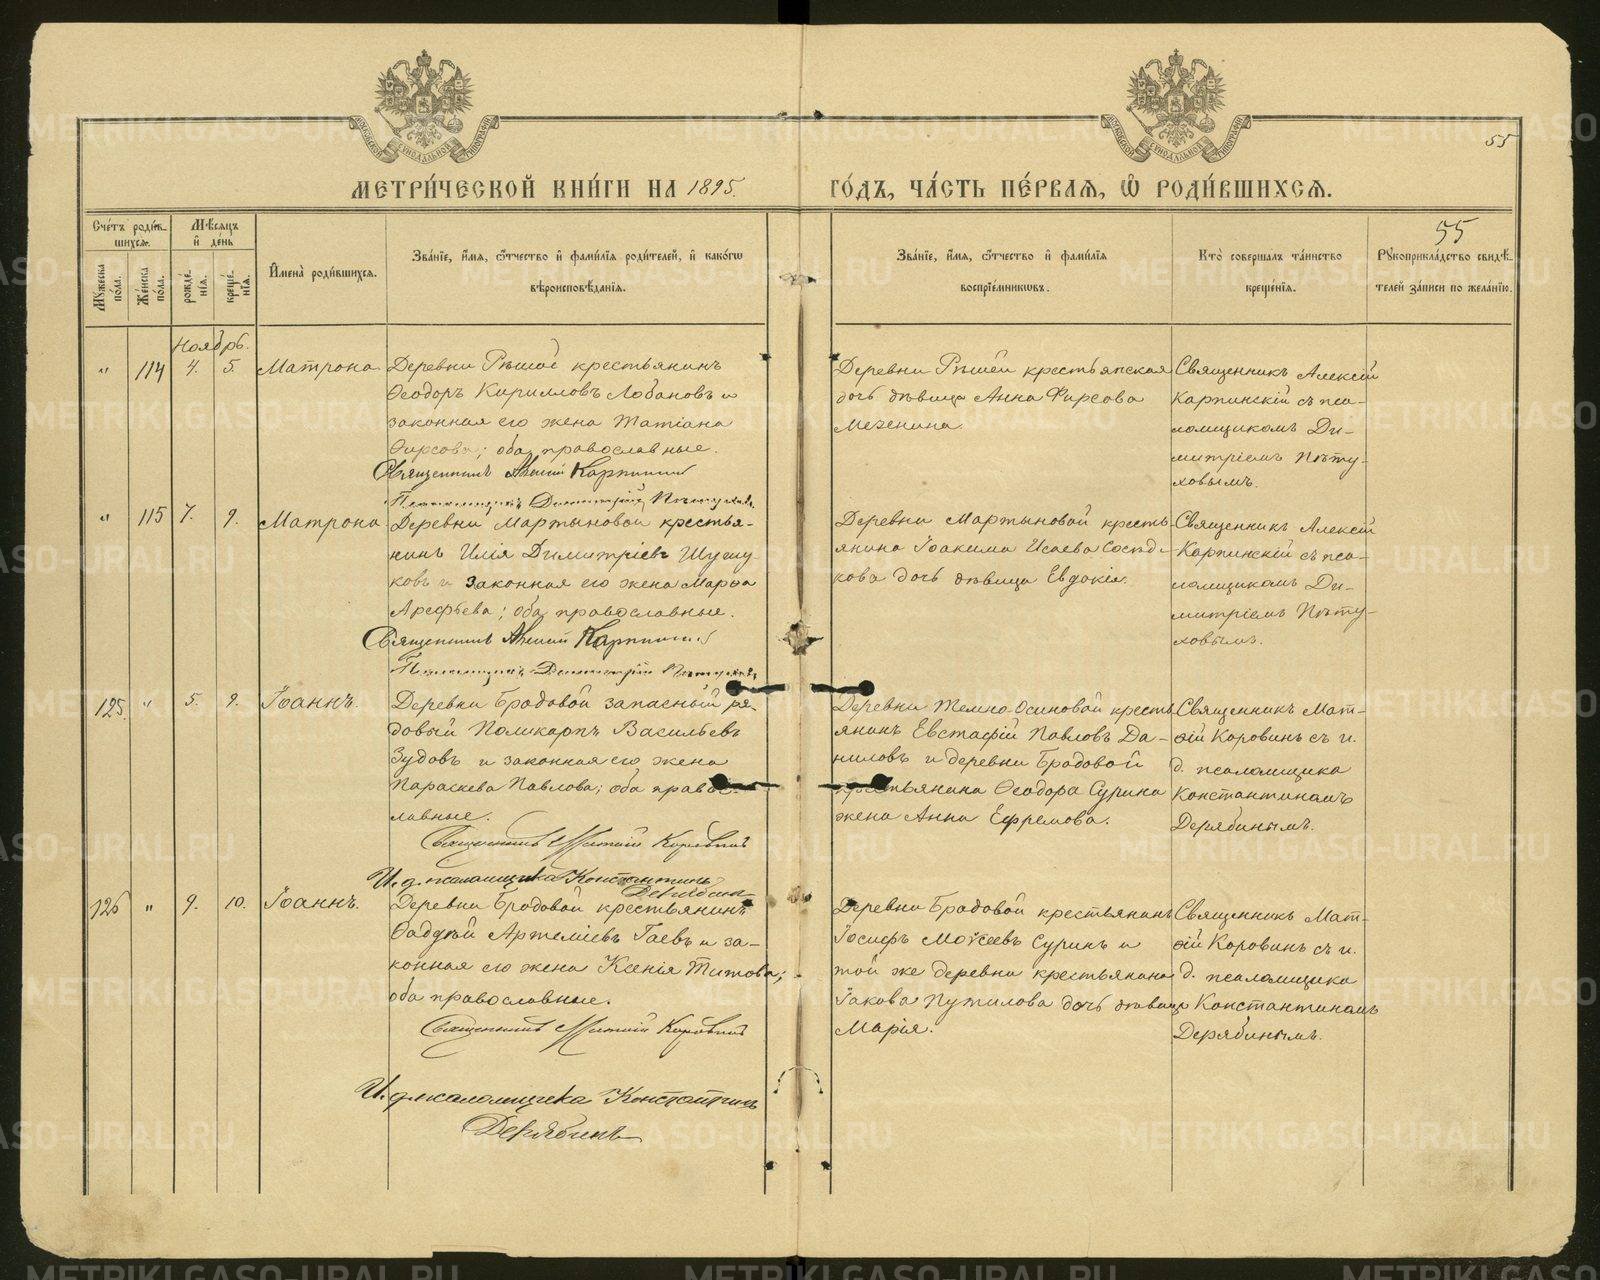 МОСКОВСКОЙ СУНОДАЛЬНОЙ ТИПОГРАФІИ
МОСКОВСКОЙ СУНОДАЛЬНОЙ ТИПОГРАФІИ
55
МЕТРИ́ЧЕСКОЙ КНИ́ГИ НА 1895.
ГО́ДЪ, ЧА́СТЬ ПЕ́РВАЯ, Ѽ РОДИ́ВШИХСЯ.
55
Сче́тъ роди́в-
шихся.
Мѣ́сяцъ
и҆ де́нь
Му́жеска
по́ла.
Же́нска
по́ла.
рожде́-
нія.
креще́-
нія.
И҆мена̀ роди́вшихся.
Зва́нїе, и҆́мя, ѻ҆́тчество и҆ фами́лїя роди́телей, и҆ како́гѡ
вѣроисповѣ́данїя.
Зва́нїе, и҆́мя, ѻ҆́тчество и҆ фами́лїя
воспріе́мниковъ.
Кто̀ соверша́лъ та́инство
креще́нїя.
Рꙋкоприкла́дство свидѣ́-
телей за́писи по жела́нїю.
Ноябрь.
" 114 4. 5. Матрона
Деревни Рѣшой крестьянинъ
Ѳеодоръ Кирилловъ Лобановъ и
законная его жена Татіана
Ѳирсова; оба православные.
Священникъ Алексій Карпинскій
Псаломщикъ Димитрій Пѣтуховъ
Деревни Рѣшей крестьянская
дочь дѣвица Анна Фирсова
Мехенина
Священникъ Алексій
Карпинскій съ пса-
ломщикомъ Ди-
митріемъ Пѣту-
ховымъ.
" 115 7. 9. Матрона
Деревни Мартыновой крестья-
нинъ Илія Димитріевъ Шушу-
ковъ и законная его жена Марѳа
Арефьева; оба православные.
Священникъ Алексій Карпинскій
Псаломщикъ Димитрій Пѣтуховъ
Деревни Мартыновой кресть-
янина Іоакима Исаева Сосѣд-
кова дочь дѣвица Евдокія.
Священникъ Алексій
Карпинскій съ пса-
ломщикомъ Ди-
митріемъ Пѣту-
ховымъ.
125. " 5. 9. Іоаннъ.
Деревни Бродовой запасный ря-
довый Поликарпъ Васильевъ
Зудовъ и законная его жена
Параскева Павлова; оба право-
славные.
Священникъ Матѳій Коровинъ
И. д. псаломщика Константинъ
Дерябинъ
Деревни Темно-Осиновой кресть-
янинъ Евстафій Павловъ Да-
ниловъ и деревни Бродовой
крестьянина Ѳеодора Сурина
жена Анна Ефремова.
Священникъ Мат-
ѳій Коровинъ съ и.
д. псаломщика
Константиномъ
Дерябинымъ.
126 " 9. 10. Іоаннъ.
Деревни Бродовой крестьянинъ
Ѳаддей Артеміевъ Гаевъ и за-
конная его жена Ксенія Титова;
оба православные.
Священникъ Матѳій Коровинъ
И. д. псаломщика Константинъ
Дерябинъ
Деревни Бродовой крестьянинъ
Іосифъ Моѵсеевъ Суринъ и
той же деревни крестьянина
Іакова Путилова дочь дѣвица
Марія.
Священникъ Мат-
ѳій Коровинъ съ и.
д. псаломщика
Константиномъ
Дерябинымъ.
METRIKI.GASO-URAL.RU